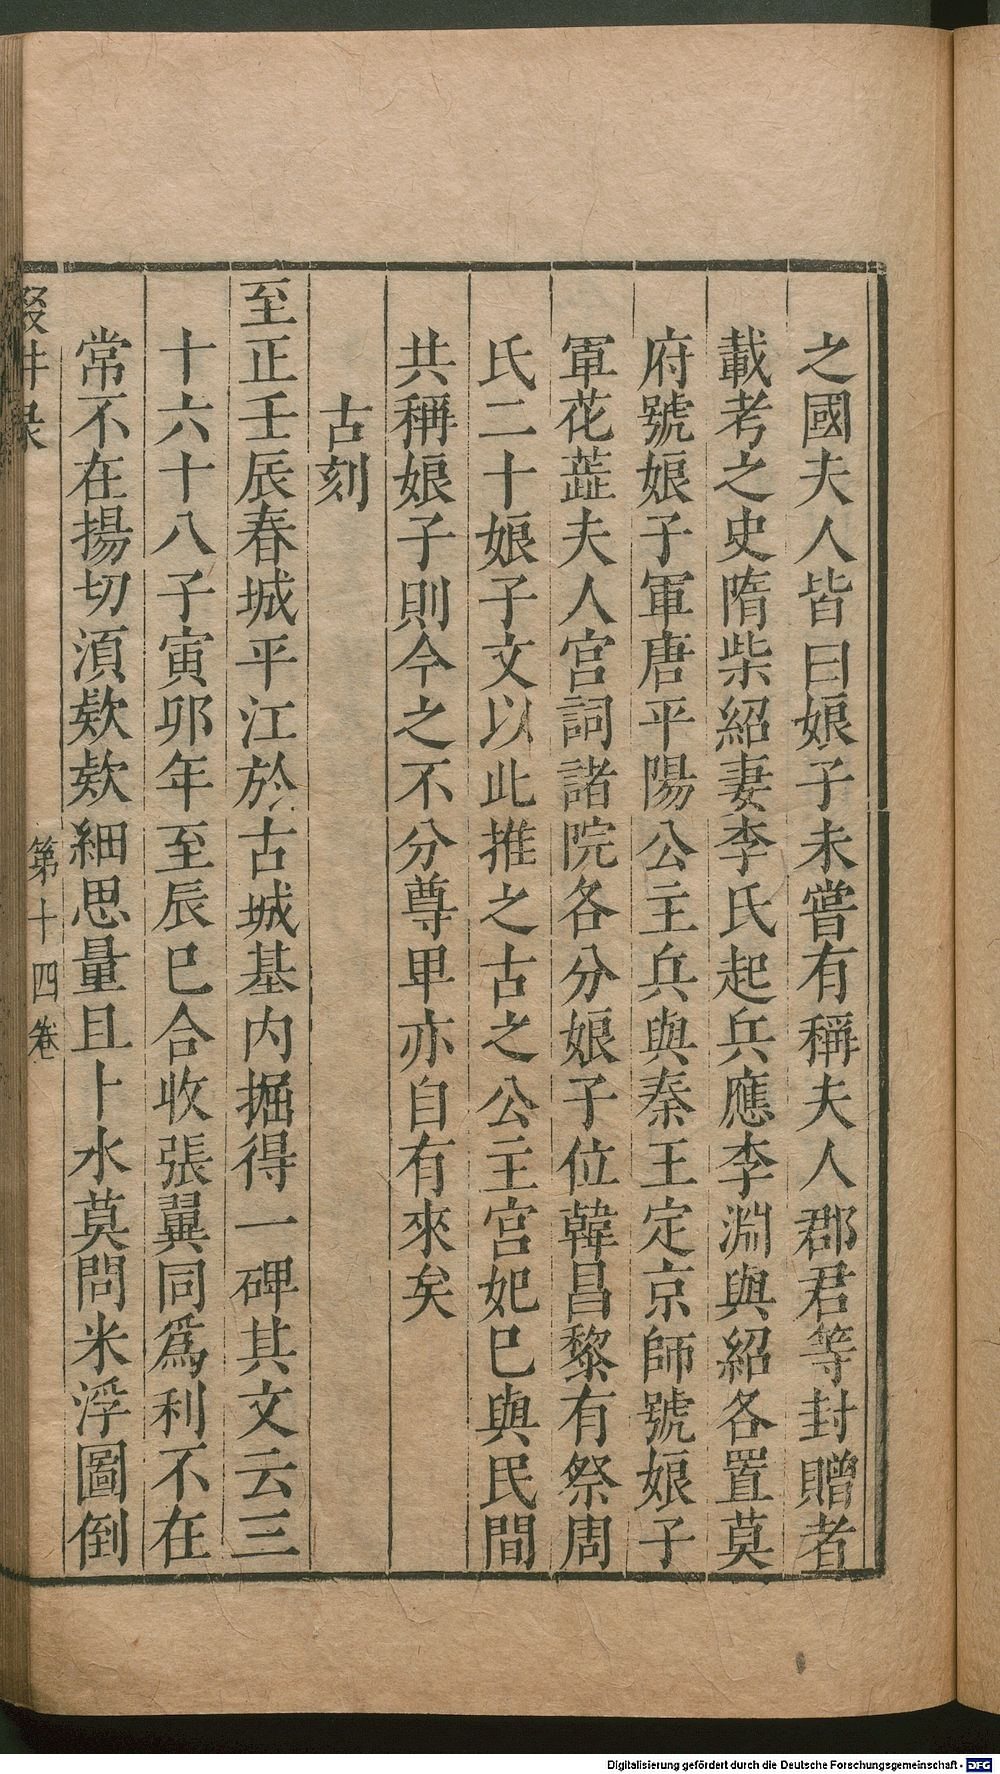 之國夫人皆曰娘子未嘗有稱夫人郡君等封贈者
載考之史隋柴紹妻李氏起兵應李淵與紹各置莫
府號娘子軍唐平陽公主兵與秦王定京師號娘子
軍花蕋夫人宮詞諸院各分娘子位韓昌黎有祭周
氏二十娘子文以此推之古之公主宮妃已與民間
共稱娘子則今之不分尊甲亦自有來矣
古刻
至正壬辰春城平江於古城基內掘得一碑其文云三
十六十八子寅卯年至辰巳合收張翼同爲利不在
常不在揚切湏欵欵細思量且卜水莫問米浮圖倒
輟耕录
第十四卷
Digitalisierung gefördert durch die Deutsche Forschungsgemeinschaft - DFG